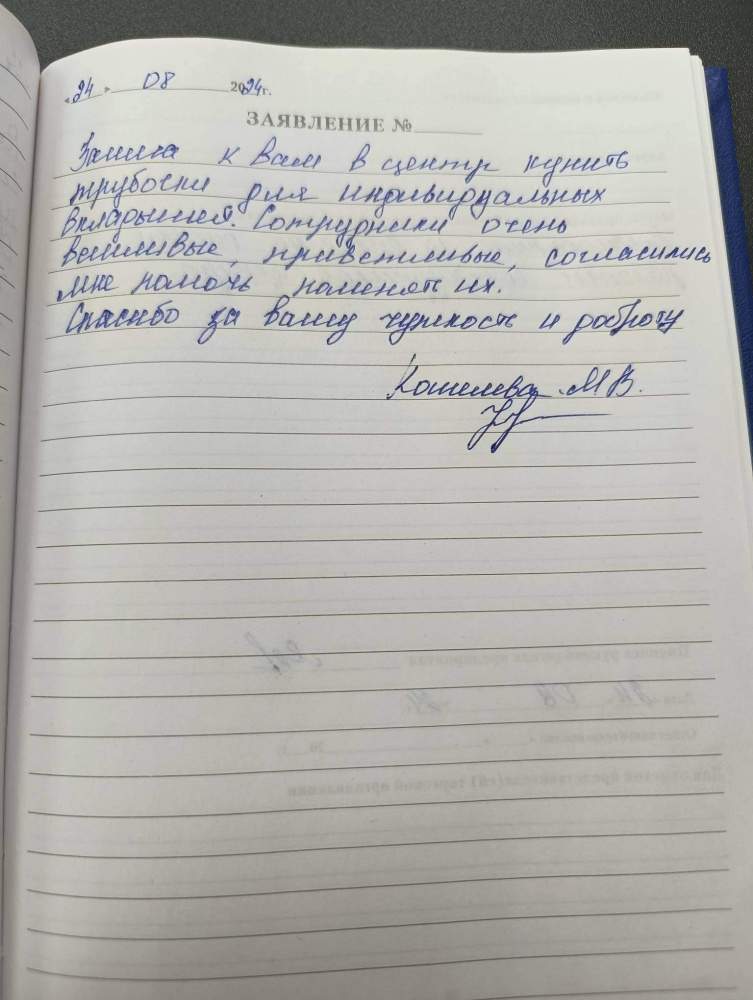 «24» 08 2024г.
ЗАЯВЛЕНИЕ №
Зашла к Вам в центр купить
трубочки для индивидуальных
вкладышей. Сотрудники очень
вежливые, приветливые, согласились
мне помочь поменять их.
Спасибо за вашу чуткость и доброту
Кошелева М В.